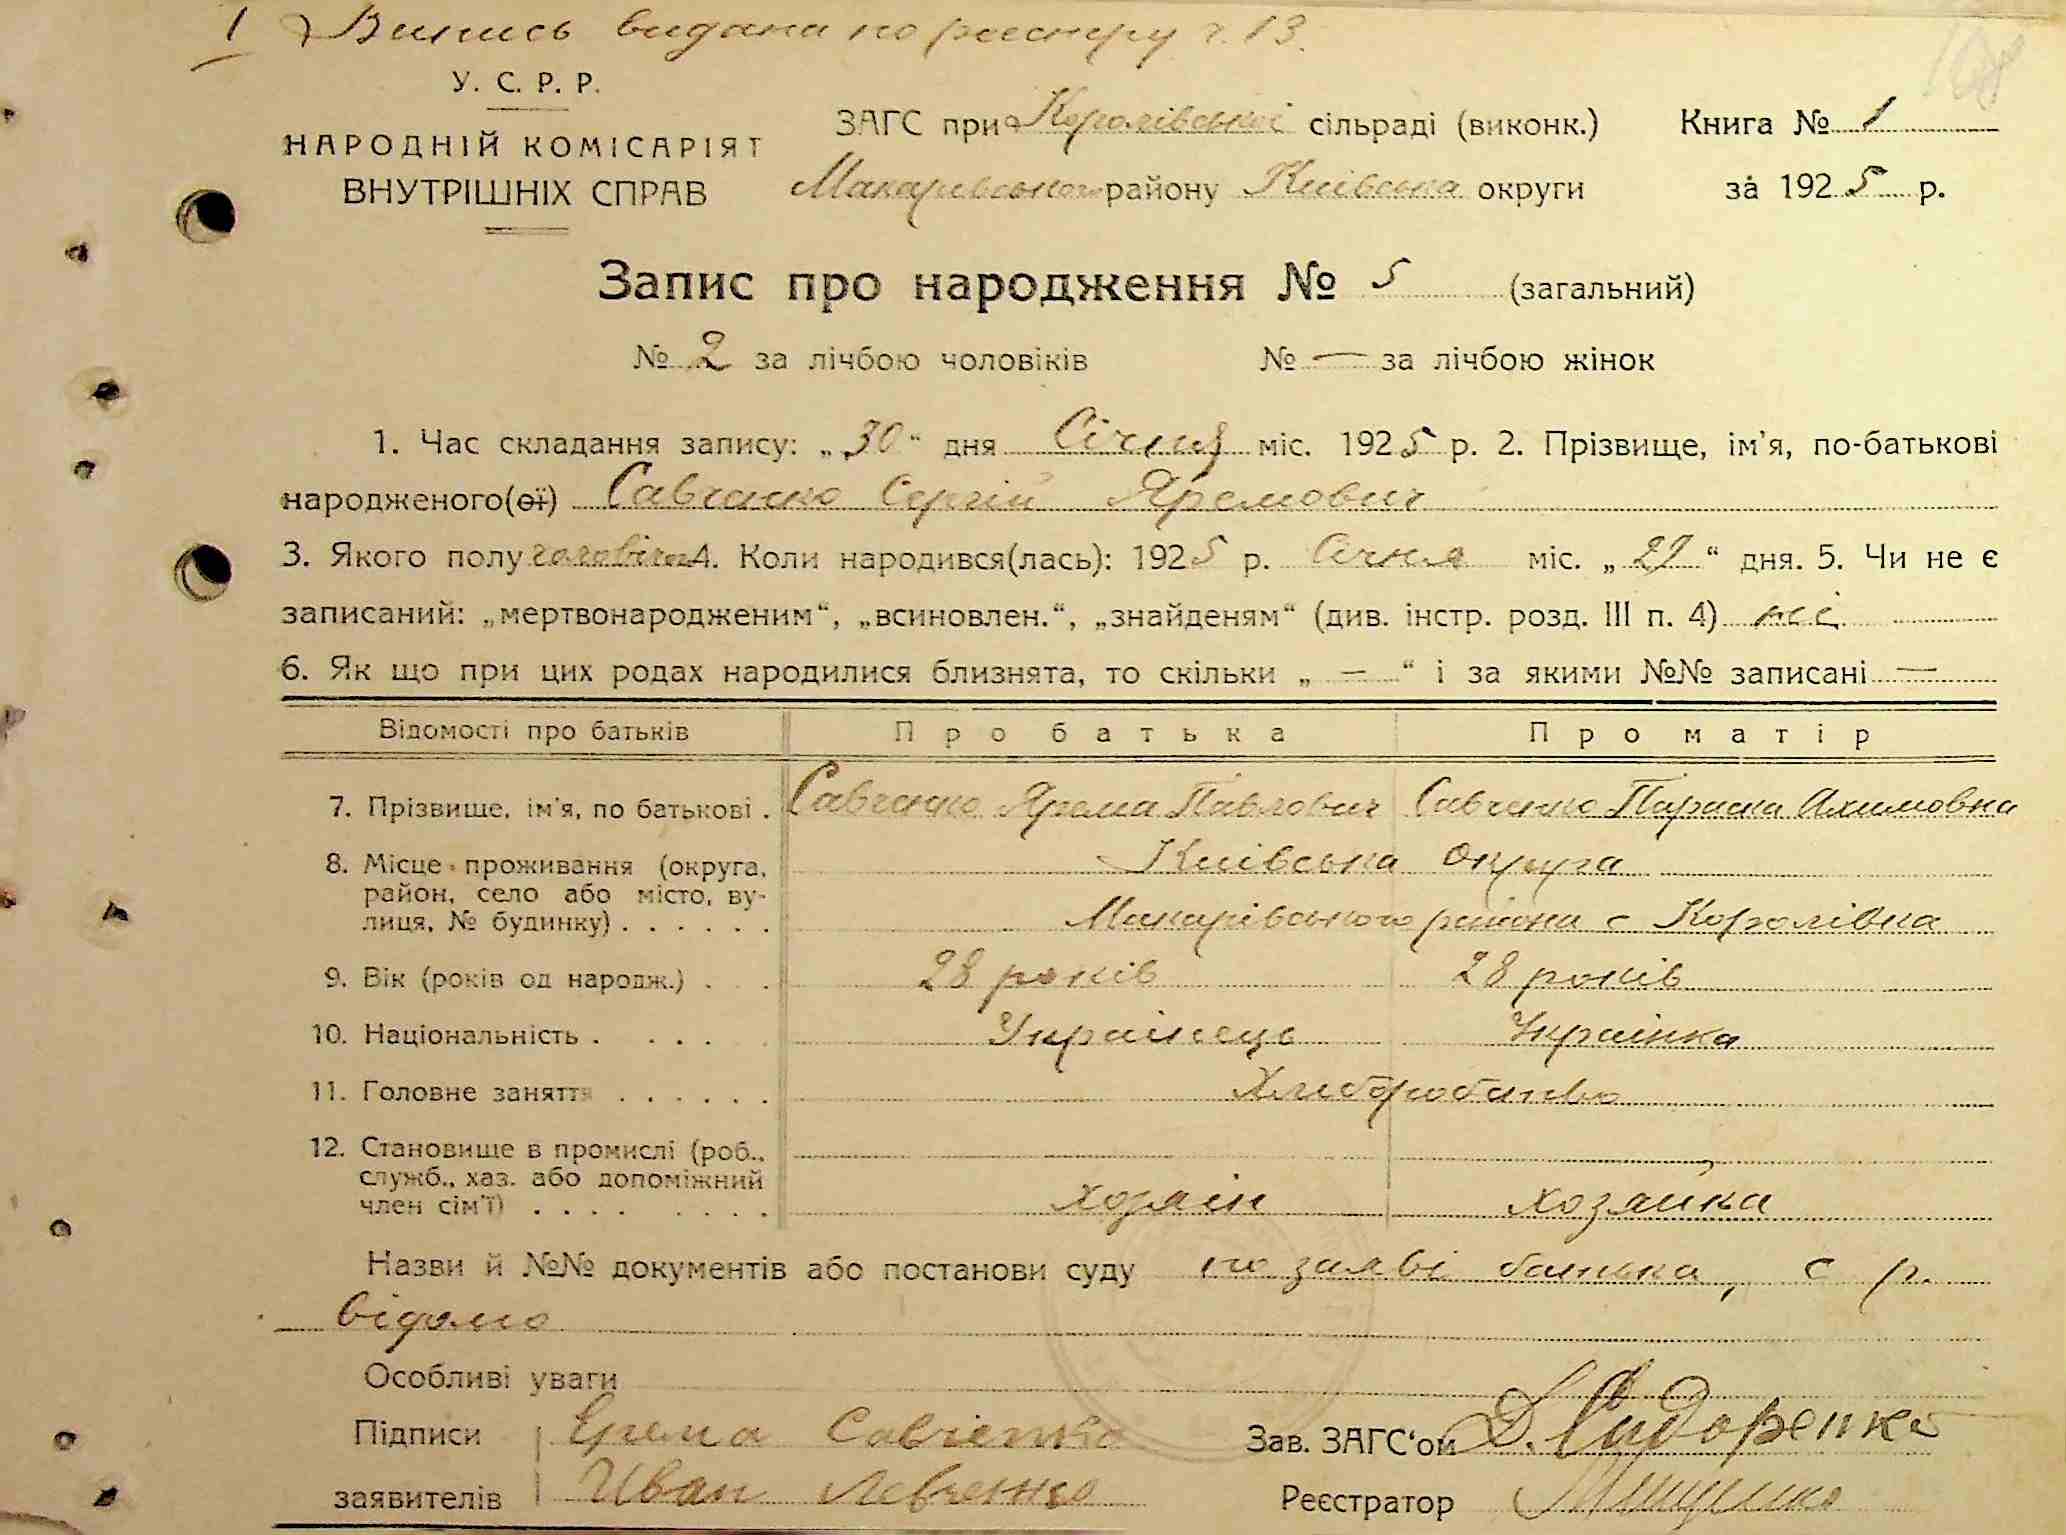 1 Випись видана по реєстру ч. 13.
У. С. Р. Р.
НАРОДНІЙ КОМІСАРІЯТ
ВНУТРІШНІХ СПРАВ
ЗАГС при Королівській сільраді (виконк.)
Макарівського району Київська округи
Книга № 1
за 1925 р.
Запис про народження № 5 (загальний)
№ 2 за лічбою чоловіків № — за лічбою жінок
1. Час складання запису: „30“ дня Січня міс. 1925 р. 2. Прізвище, ім'я, по-батькові
народженого(ої) Савченко Сергій Яремович
3. Якого полу чоловічої 4. Коли народився(лась): 1925 р. Січня міс. „29“ дня. 5. Чи не є
записаний: „мертвонародженим“, „всиновлен.“, „знайденям“ (див. інстр. розд. III п. 4) ні
6. Як що при цих родах народилися близнята, то скільки „ — “ і за якими №№ записані —
Відомості про батьків Про батька Про матір
7. Прізвище, ім'я, по батькові . Савченко Ярема Павлович Савченко Параска Акимовна
8. Місце проживання (округа, Київська округа
район, село або місто, ву-
лиця, № будинку) . . . . . . Макарівського района с Королівка
9. Вік (років од народж.) . . . 28 років 28 років
10. Національність . . . . Українець Українка
11. Головне заняття . . . . . . Хліборобство
12. Становище в промислі (роб.,
служб., хаз. або допоміжний
член сім'ї) . . . . . . . . хозяїн хозяйка
Назви й №№ документів або постанови суду по заяві батька, с р.
відомо
Особливі уваги
Підписи Ярема Савченко
заявителів Иван Левченко
Зав. ЗАГС'ом Д. Сидоренко
Реєстратор